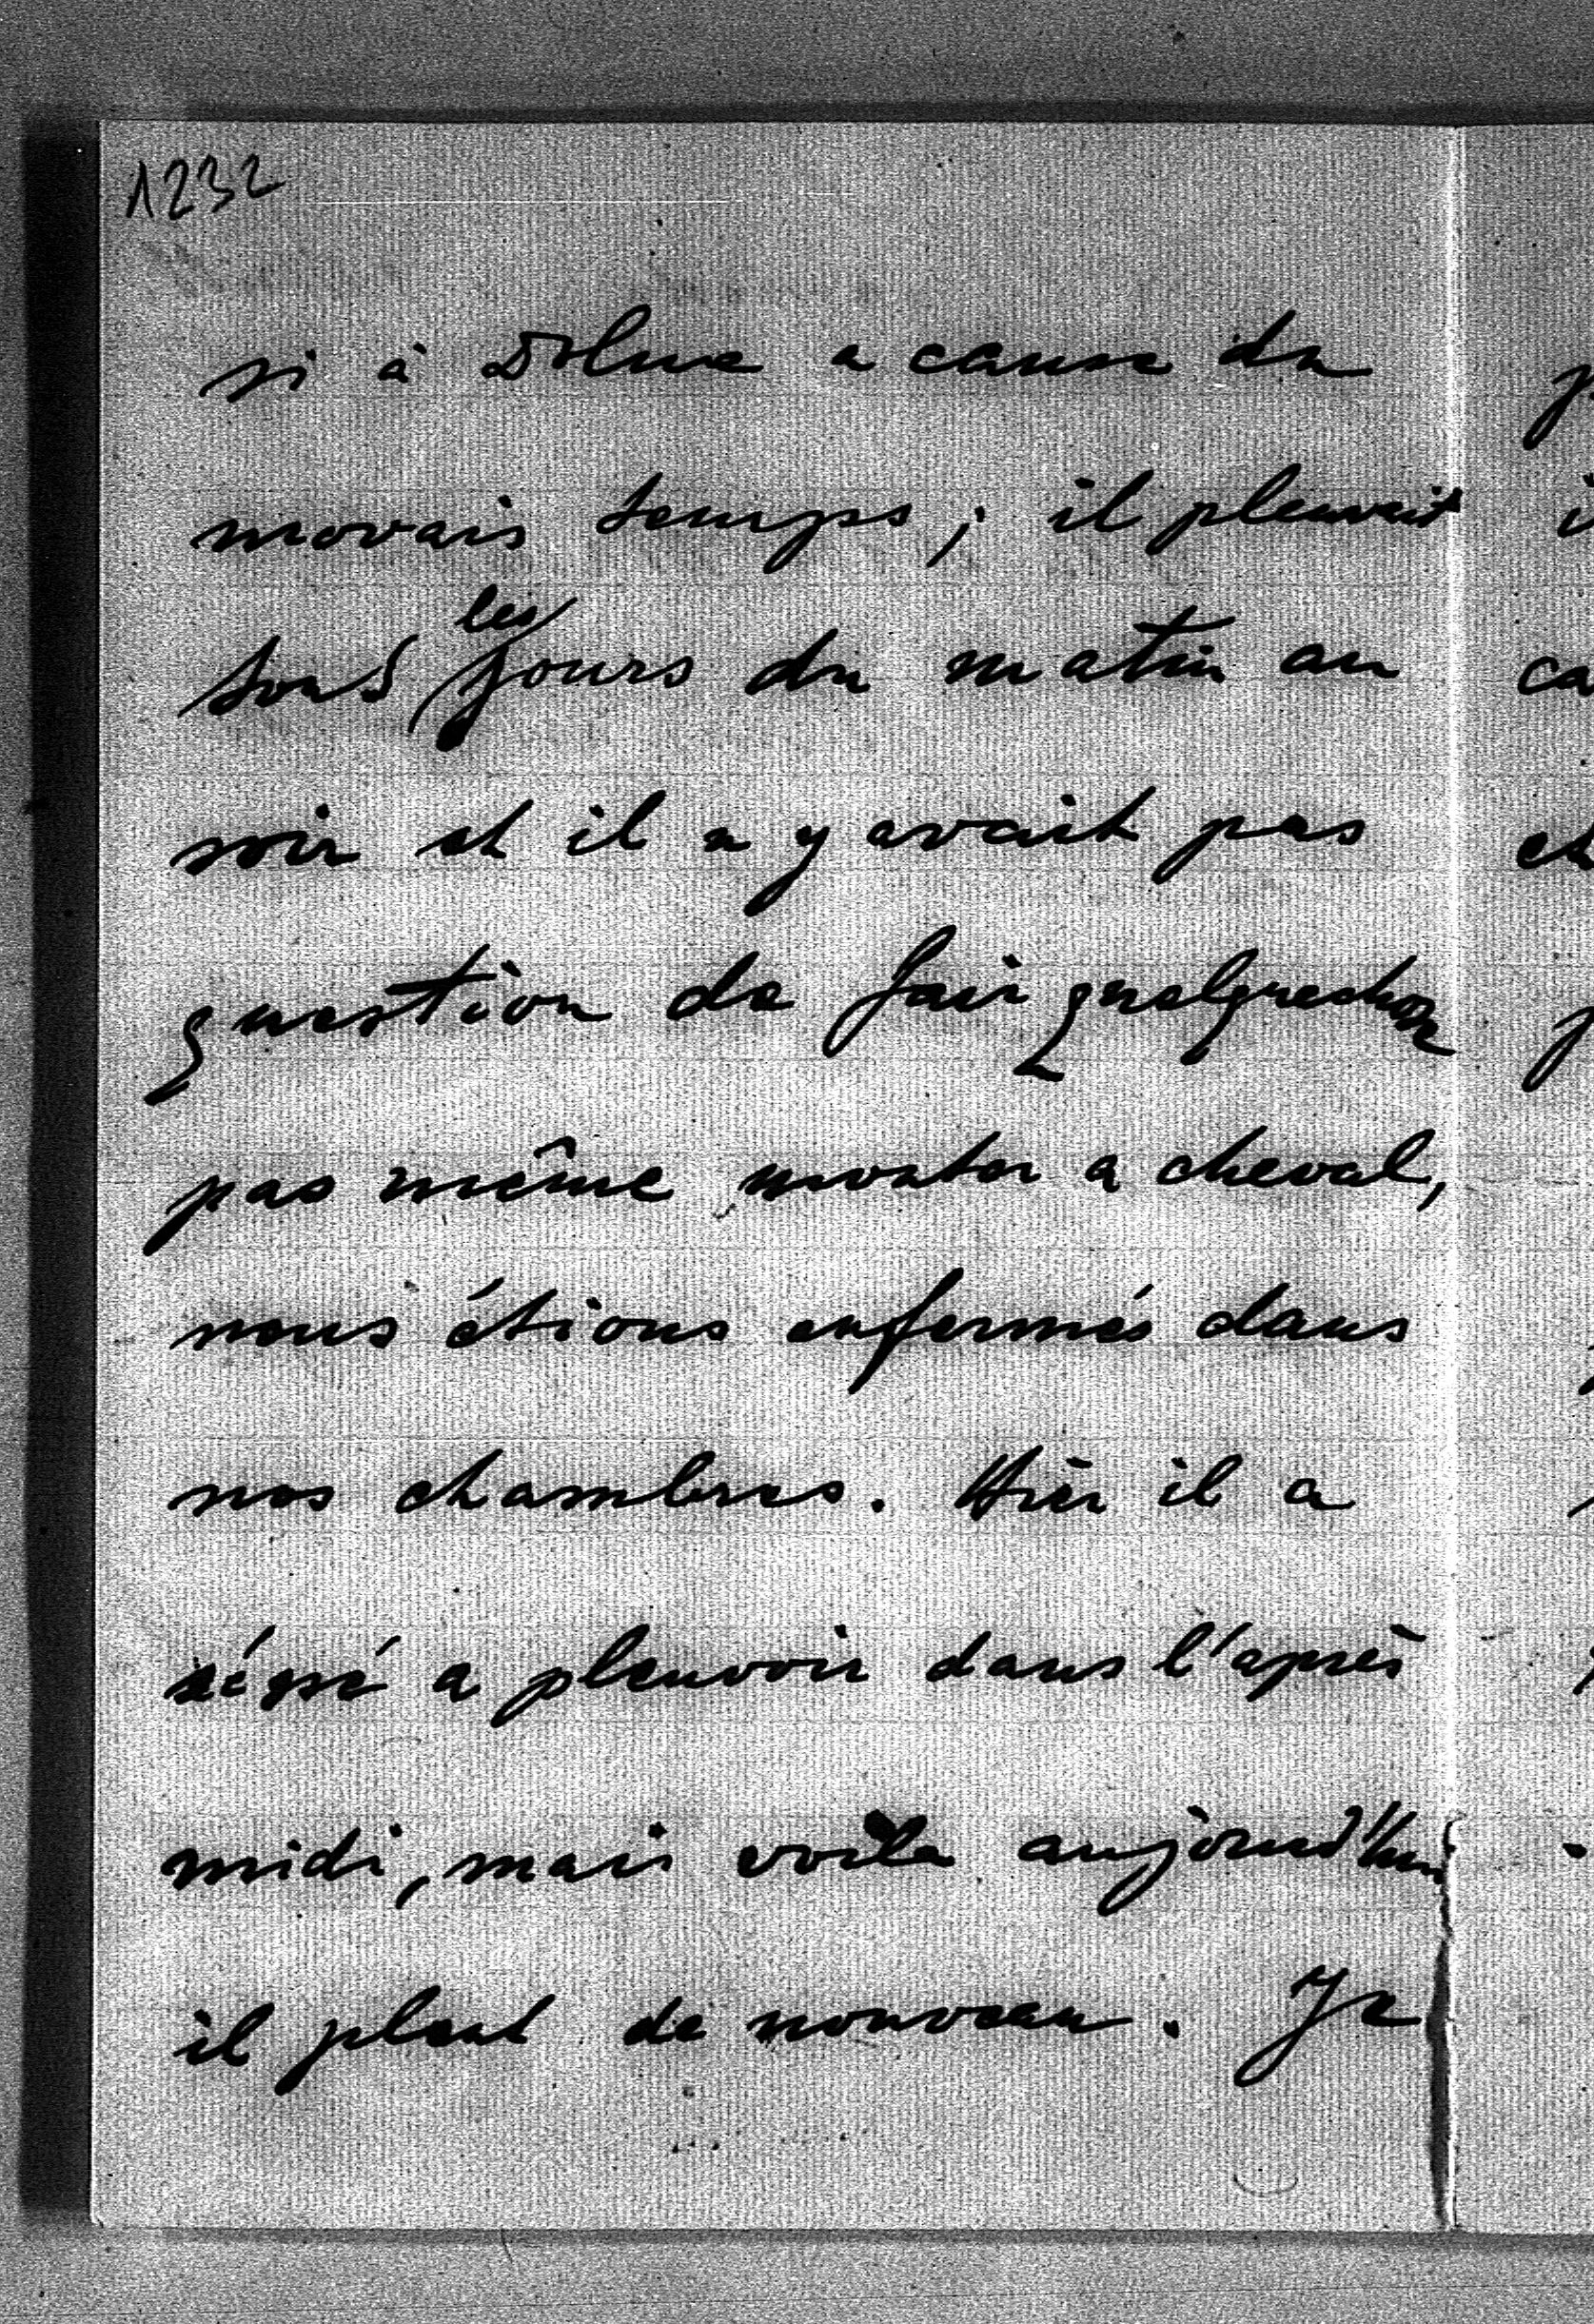 1232
si à Dolna a cause du
movais temps; il pleuvait
tous les jours du matin au
soir et il n y avait pas
question de fair quelquechose
pas même monter a cheval,
nous étions enfermés dans
nos chambres. Hièr il a
séssé a pleuvoir dans l'après
midi, mais voila aujourd'hui
il pleut de nouveau. Je